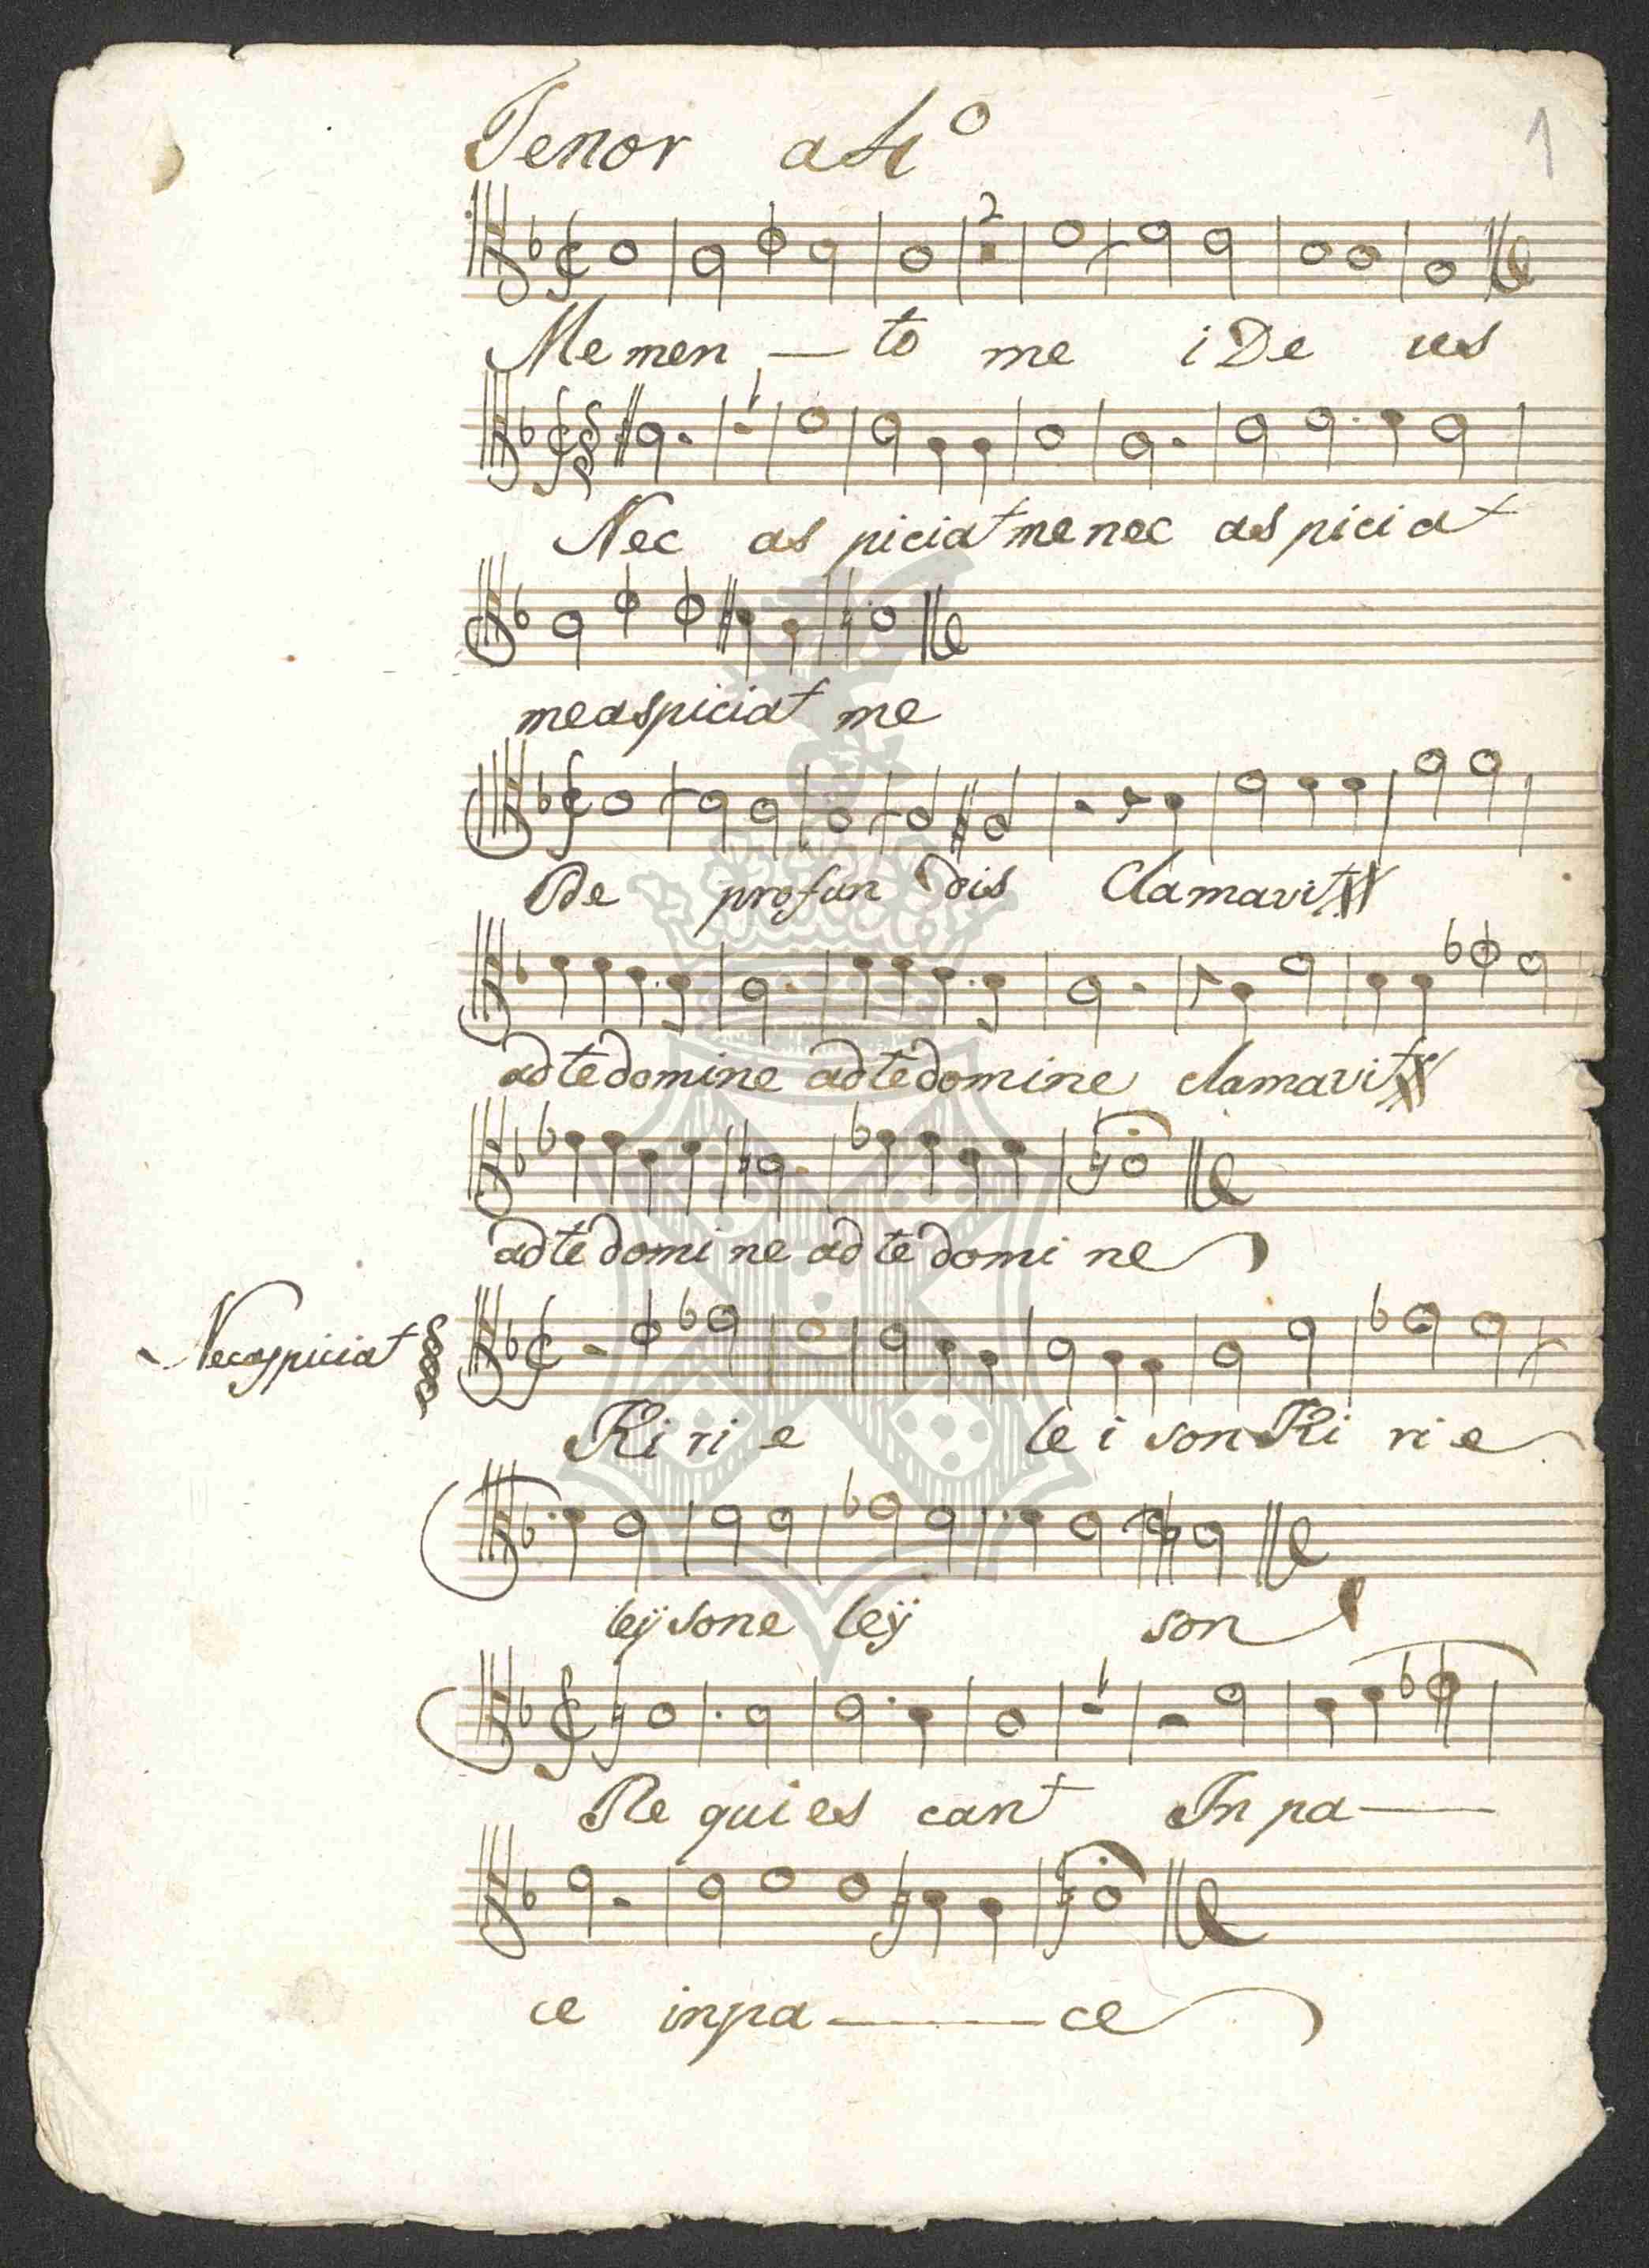 Tenor a 4º
1
2
Me men — to me i De us
Nec as piciat me nec as piciat
me aspiciat me
De profun dis Clamavi
ad te domine ad te domine clamavi
ad te domi ne ad te domi ne
Nec aspiciat
Ki ri e le i son Ki ri e
leÿ son e leÿ son
Re qui es cant In pa —
ce in pa — ce